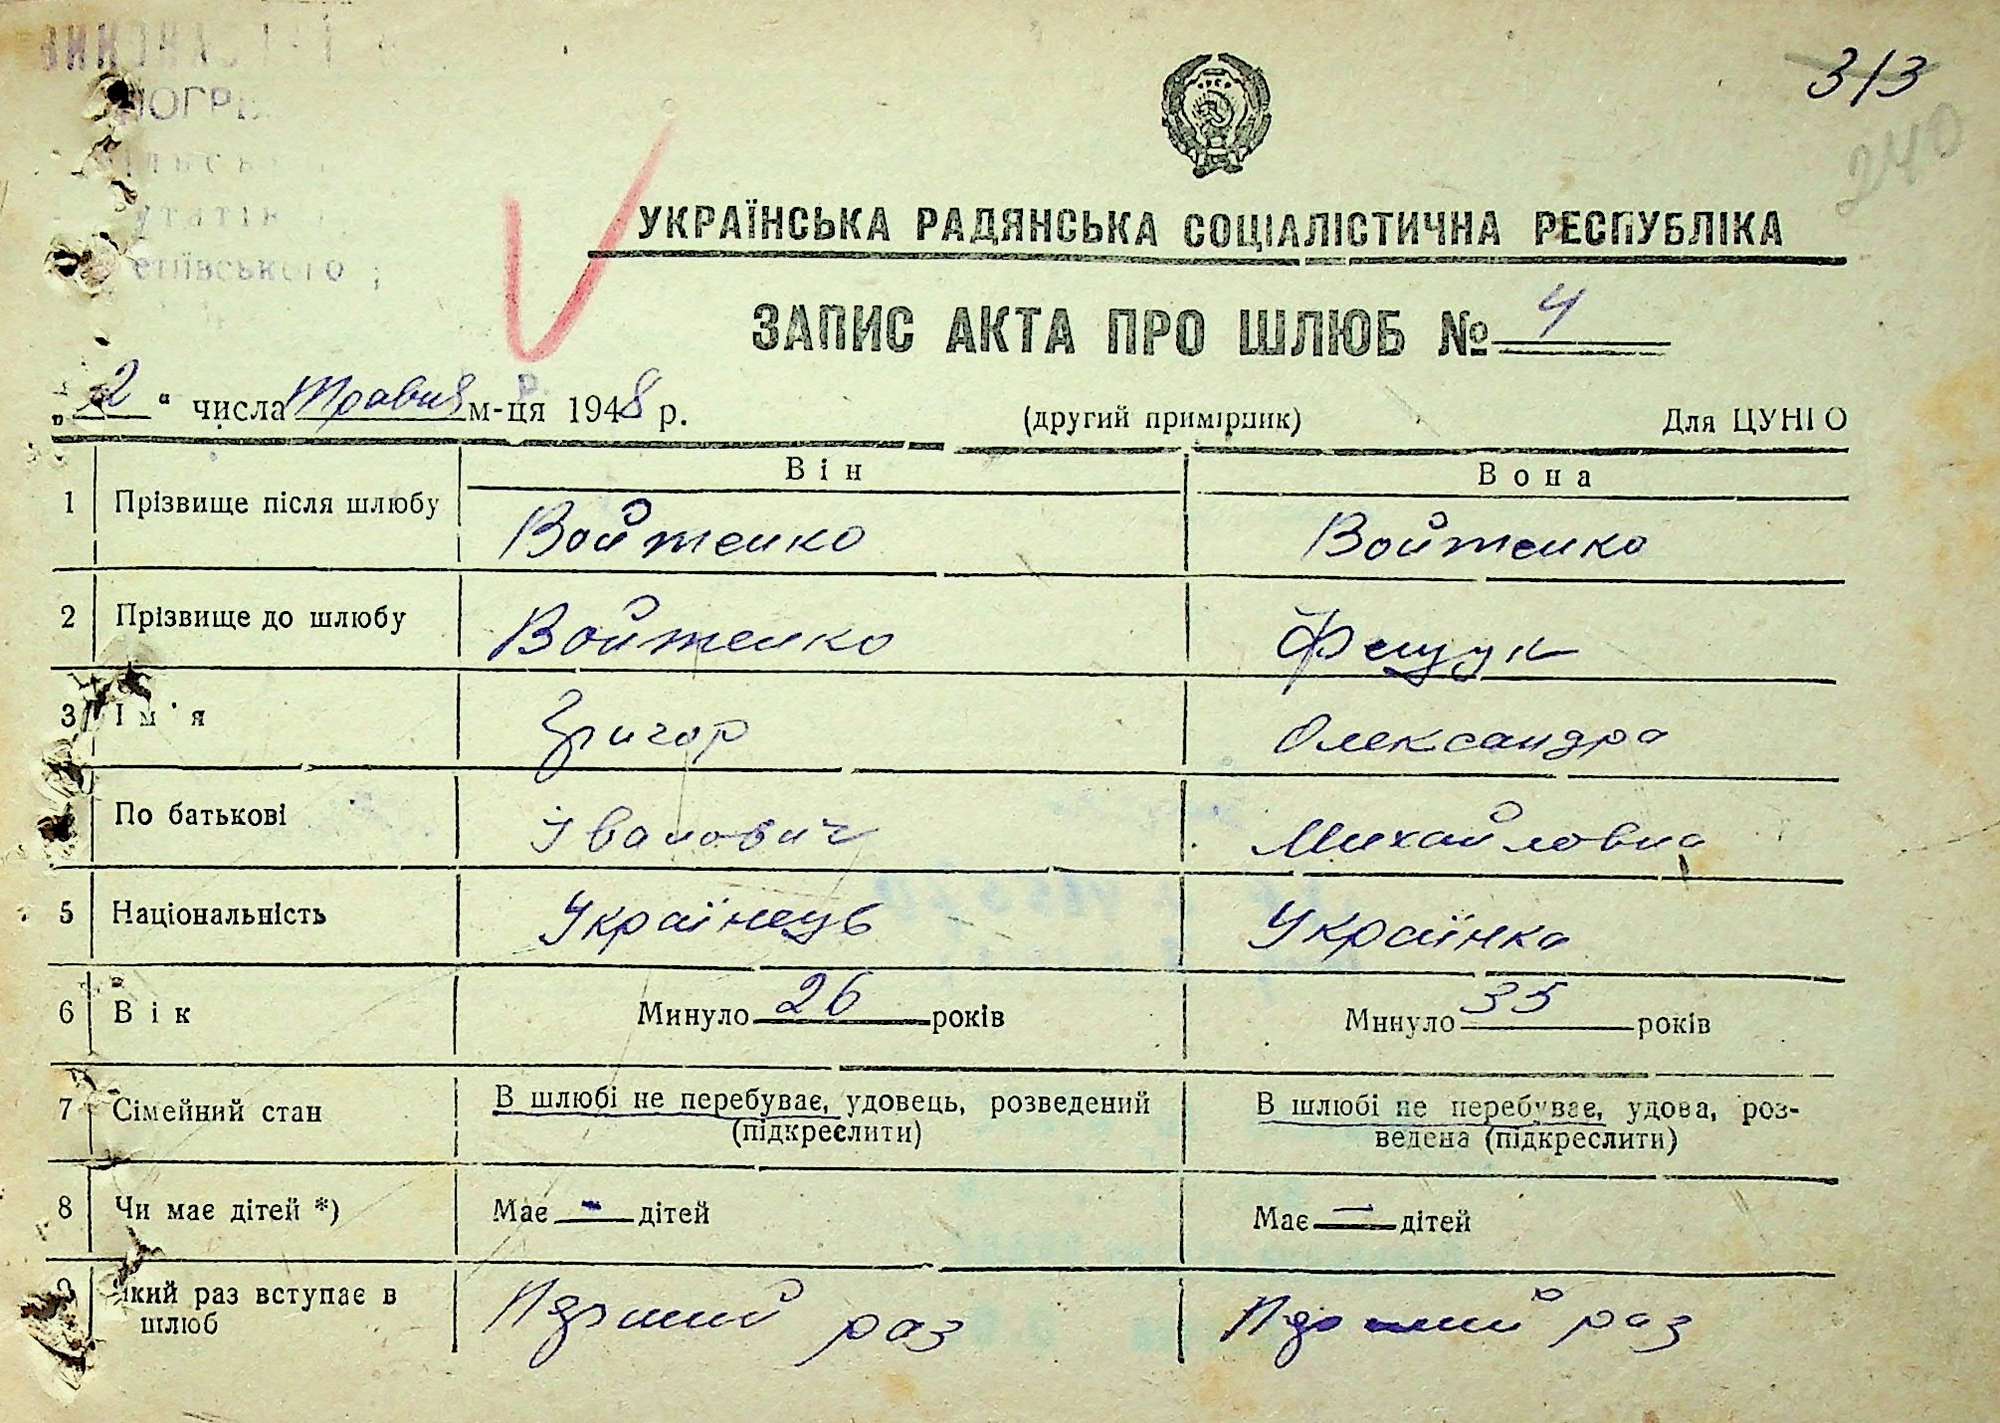 313
240
УКРАЇНСЬКА РАДЯНСЬКА СОЦІАЛІСТИЧНА РЕСПУБЛІКА
ЗАПИС АКТА ПРО ШЛЮБ № 4
„2“ числа травня м-ця 1948 р. (другий примірник) Для ЦУНГО
Він Вона
1 Прізвище після шлюбу Войтенко Войтенко
2 Прізвище до шлюбу Войтенко Фещук
3 Ім'я Григор Олександра
По батькові Іванович Михайловна
5 Національність Українець Українка
6 Вік Минуло 26 років Минуло 35 років
7 Сімейний стан В шлюбі не перебуває, удовець, розведений В шлюбі не перебуває, удова, роз-
(підкреслити) ведена (підкреслити)
8 Чи має дітей *) Має - дітей Має — дітей
9 Який раз вступає в Перший раз Перший раз
шлюб